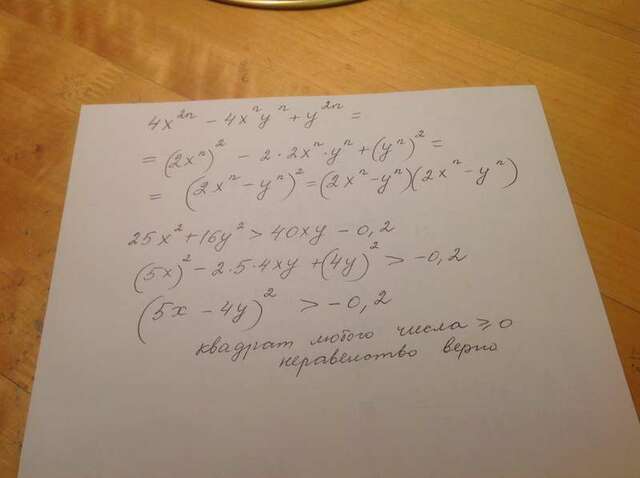 4x²ⁿ - 4xⁿyⁿ + y²ⁿ =
= (2xⁿ)² - 2·2xⁿ·yⁿ + (yⁿ)² =
= (2xⁿ - yⁿ)² = (2xⁿ - yⁿ)(2xⁿ - yⁿ)
25x² + 16y² > 40xy - 0,2
(5x)² - 2·5·4xy + (4y)² > -0,2
(5x - 4y)² > -0,2
квадрат любого числа ≥ 0
неравенство верно